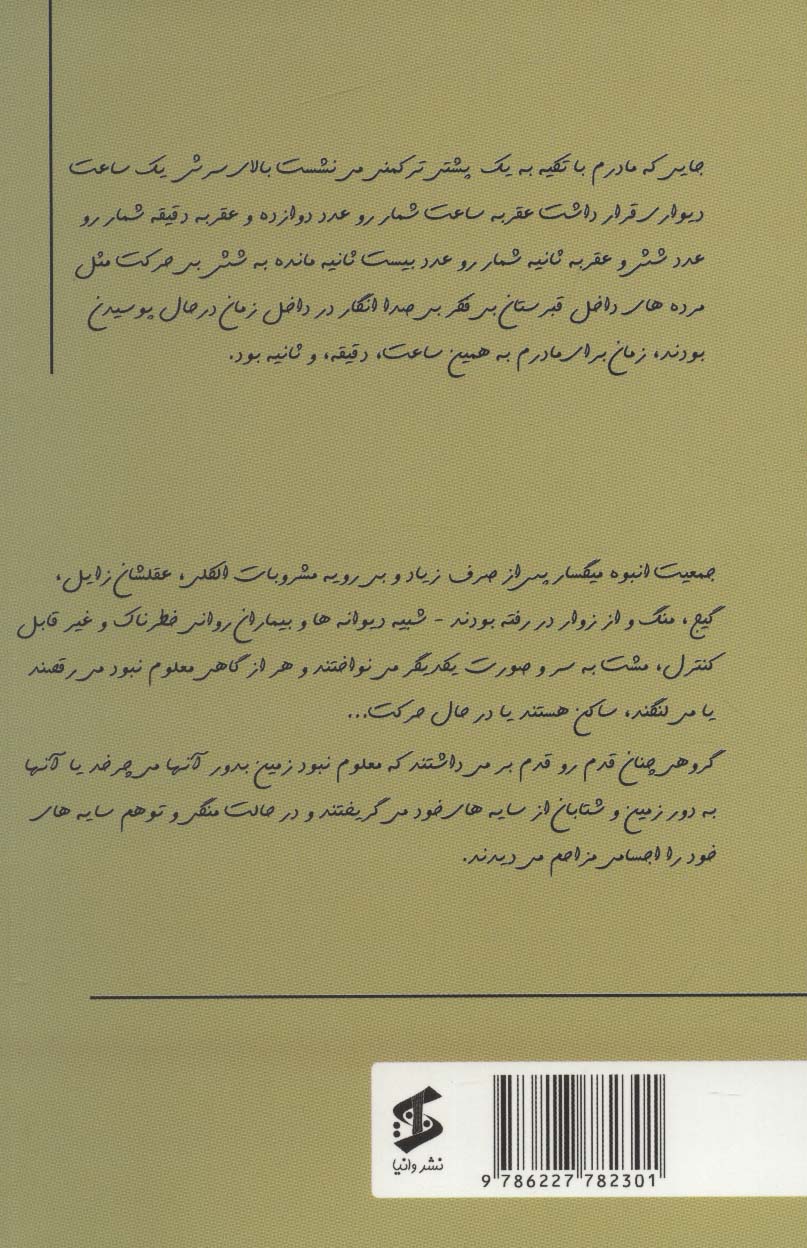 جایی که مادرم با تکیه به یک پشتی ترکمنی می نشست بالای سرش یک ساعت
دیواری قرار داشت عقربه ساعت شمار رو عدد دوازده و عقربه دقیقه شمار رو
عدد شش و عقربه ثانیه شمار رو عدد بیست ثانیه مانده به شش بی حرکت مثل
مرده های داخل قبرستان بی فکر بی صدا انگار در داخل زمان درحال پوسیدن
بودند، زمان برای مادرم به همین ساعت، دقیقه، و ثانیه بود.
جمعیت انبوه میگسار پس از صرف زیاد و بی رویه مشروبات الکلی، عقلشان زایل،
گیج، منگ و از زوار در رفته بودند - شبیه دیوانه ها و بیماران روانی خطرناک و غیر قابل
کنترل، مشت به سر و صورت یکدیگر می نواختند و هر از گاهی معلوم نبود می رقصند
یا می لنگند، ساکن هستند یا در حال حرکت...
گروهی چنان قدم رو قدم بر می داشتند که معلوم نبود زمین بدور آنها می چرخد یا آنها
به دور زمین و شتابان از سایه های خود می گریختند و در حالت منگی و توهم سایه های
خود را اجسامی مزاحم می دیدند.
نشر وانیا
9 786227 782301